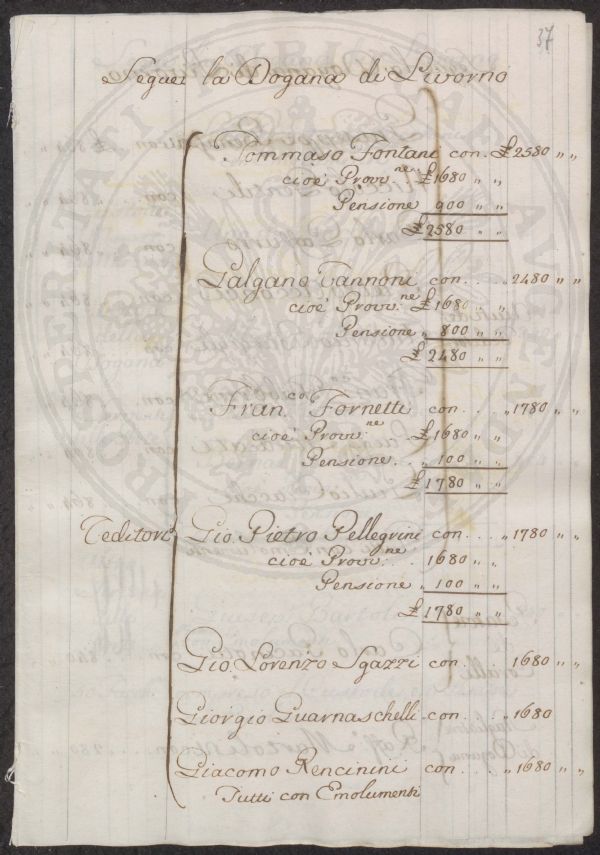 37
Segue la Dogana di Livorno
Tommaso Fontani con. £ 2580 " "
cioè Provv.ne £ 1680 " "
Pensione 900 " "
£ 2580 " "
Galgano Tannoni con. . . . " 2480 " "
cioè Provv.ne £ 1680 " "
Pensione " 800 " "
£ 2480 " "
Fran.co Fornetti con. . . . " 1780 " "
cioè Provv.ne . £ 1680 " "
Pensione . . " 100 " "
£ 1780 " "
Teditori Gio. Pietro Pellegrini con. . . . " 1780 " "
cioè Provv.ne . . 1680 " "
Pensione " 100 " "
£ 1780 " "
Gio. Lorenzo Sgazzi con. . . . 1680 " "
Giorgio Guarnaschelli con. . . . " 1680
Giacomo Rencinini con. . . . " 1680 " "
Tutti con Emolumenti